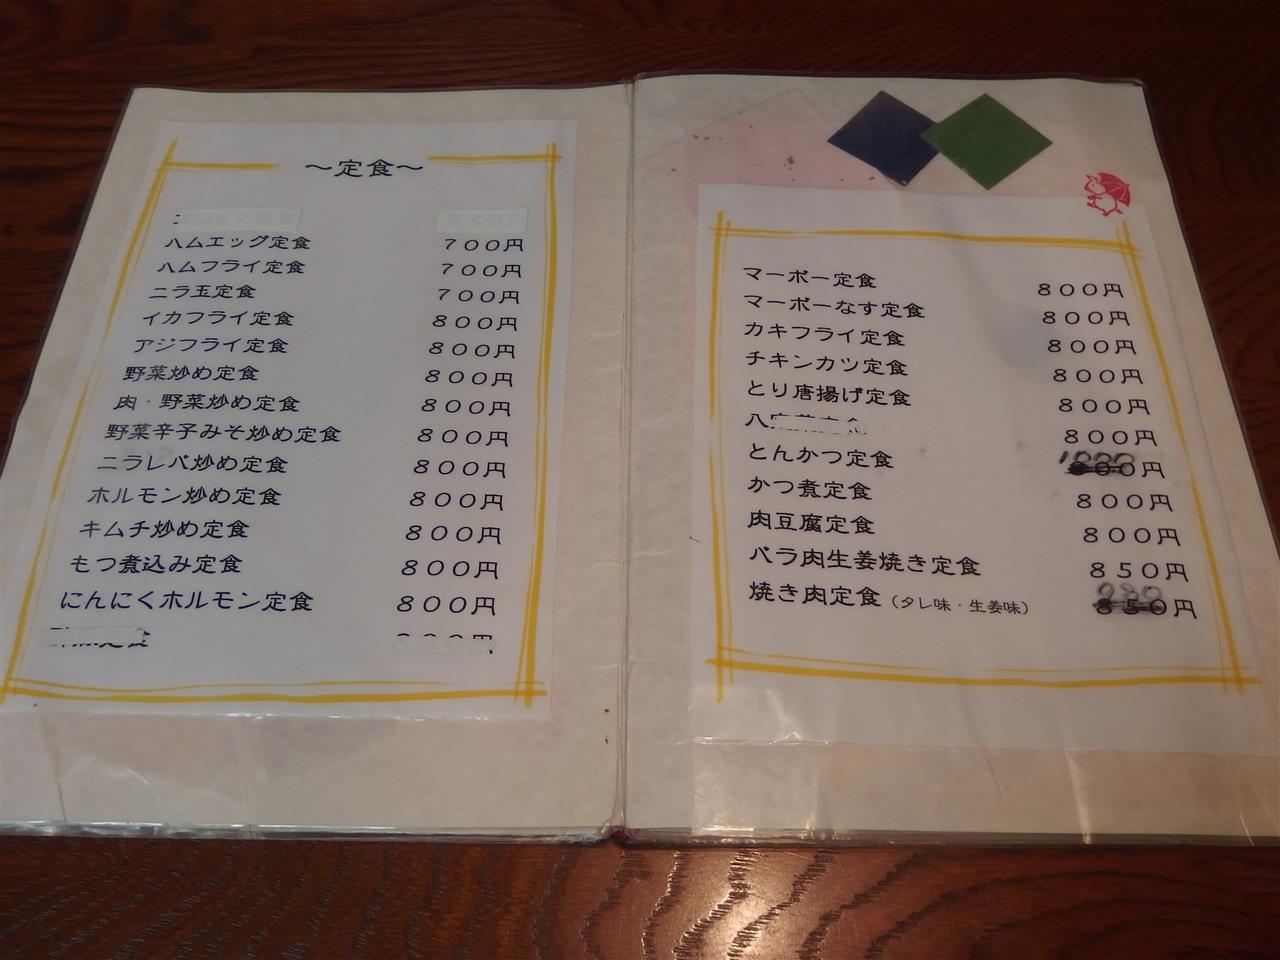 ～定食～
ハムエッグ定食 ７００円
ハムフライ定食 ７００円
ニラ玉定食 ７００円
イカフライ定食 ８００円
アジフライ定食 ８００円
野菜炒め定食 ８００円
肉・野菜炒め定食 ８００円
野菜辛子みそ炒め定食 ８００円
ニラレバ炒め定食 ８００円
ホルモン炒め定食 ８００円
キムチ炒め定食 ８００円
もつ煮込み定食 ８００円
にんにくホルモン定食 ８００円
マーボー定食 ８００円
マーボーなす定食 ８００円
カキフライ定食 ８００円
チキンカツ定食 ８００円
とり唐揚げ定食 ８００円
八 ８００円
とんかつ定食 1000円
かつ煮定食 ８００円
肉豆腐定食 ８００円
バラ肉生姜焼き定食 ８５０円
焼き肉定食（タレ味・生姜味） ８５０円